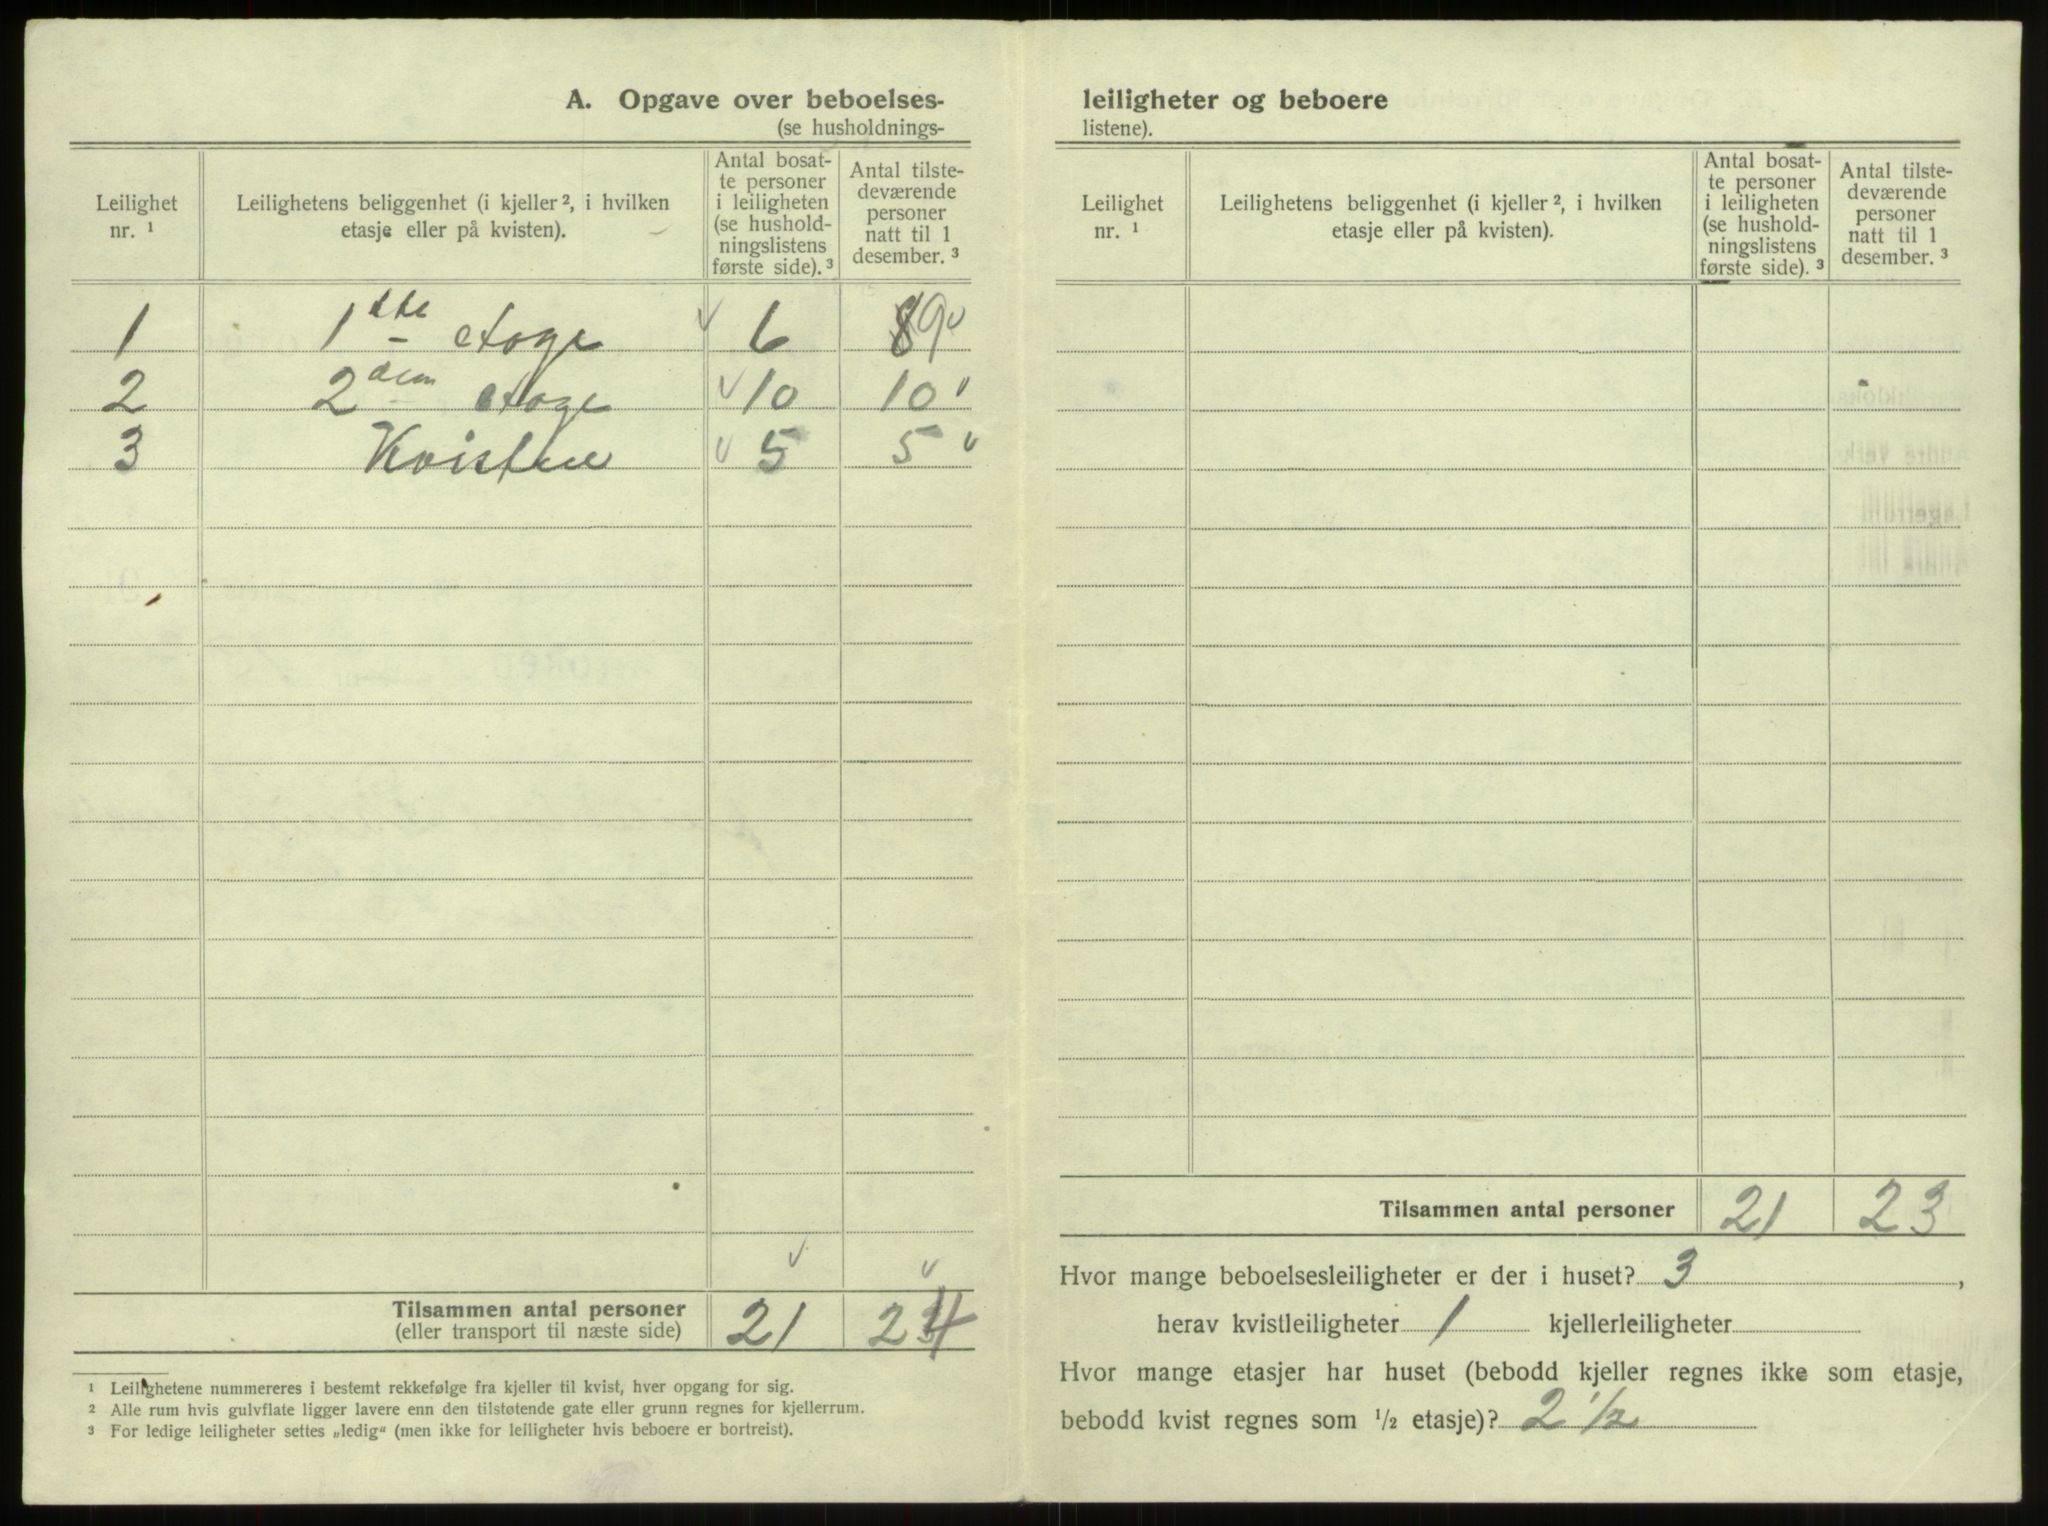 A. Opgave over beboelses-
(se husholdnings-
Leilighet nr. ¹
Leilighetens beliggenhet (i kjeller ², i hvilken etasje eller på kvisten).
Antal bosat-
te personer
i leiligheten
(se hushold-
ningslistens
første side). ³
Antal tilste-
deværende
personer
natt til 1
desember. ³
1 1ste etage 6 9
2 2den etage 10 10
3 Kvisten 5 5
Tilsammen antal personer
(eller transport til næste side) 21 24
¹ Leilighetene nummereres i bestemt rekkefølge fra kjeller til kvist, hver opgang for sig.
² Alle rum hvis gulvflate ligger lavere enn den tilstøtende gate eller grunn regnes for kjellerrum.
³ For ledige leiligheter settes „ledig“ (men ikke for leiligheter hvis beboere er bortreist).
leiligheter og beboere
listene).
Leilighet nr. ¹
Leilighetens beliggenhet (i kjeller ², i hvilken etasje eller på kvisten).
Antal bosat-
te personer
i leiligheten
(se hushold-
ningslistens
første side). ³
Antal tilste-
deværende
personer
natt til 1
desember. ³
Tilsammen antal personer 21 23
Hvor mange beboelsesleiligheter er der i huset? 3,
herav kvistleiligheter 1 kjellerleiligheter
Hvor mange etasjer har huset (bebodd kjeller regnes ikke som etasje,
bebodd kvist regnes som ½ etasje)? 2 ½